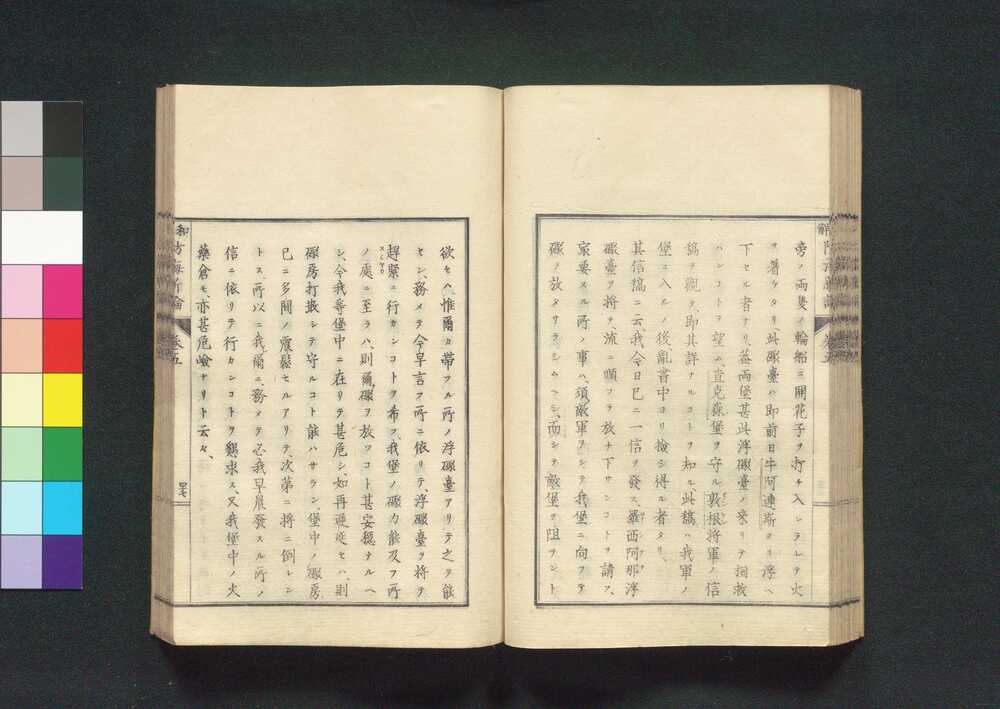 旁ノ両隻ノ輪船ニ開花子ヲ打チ入シラレテ火
ヲ著ケタリ、此礮臺ハ即前日牛阿連斯ヨリ浮ヘ
下セル者ナリ、蓋両堡甚此浮礮臺ノ来リテ相救
ハンコトヲ望ム、直克森堡ヲ守ル敦根将軍ノ信
稿ヲ観ヲ、即其詳ナルコトヲ知ル、此稿ハ我軍ノ
堡ニ入ルノ後亂書中ヨリ撿シ得ル者タリ、
其信稿ニ云、我今日已ニ一信ヲ發ス、羅西阿那浮
礮臺ヲ将テ流ニ順フテ放チ下サンコトヲ請フ、
最要スル所ノ事ハ、須敵軍ヲシテ我堡ニ向フテ
礮ヲ放タサラシムヘシ、而シテ敵堡ヲ阻ヲント
欲セハ、惟爾カ帯フル所ノ浮礮臺アリテ之ヲ能
セン、務メテ今早言フ所ニ依リテ、浮礮臺ヲ将テ
趕緊ニ行カンコトヲ希フ、我堡ノ礮力能及フ所
ノ處ニ至ラハ、則爾礮ヲ放ツコト甚安穏ナルヘ
シ、今我等堡中ニ在リテ甚危シ、如再遅延セハ、則
礮房打毀シテ守ルコト能ハサラン、堡中ノ礮房
已ニ多間ノ震鬆セルアリテ、次第ニ将ニ倒レン
トス、所以ニ我爾ニ、務メテ必我早晨發スル所ノ
信ニ依リテ行カンコトヲ懇求ス、又我堡中ノ火
藥倉モ、亦甚危嶮ナリト云々、
防海新論
巻五
四十七